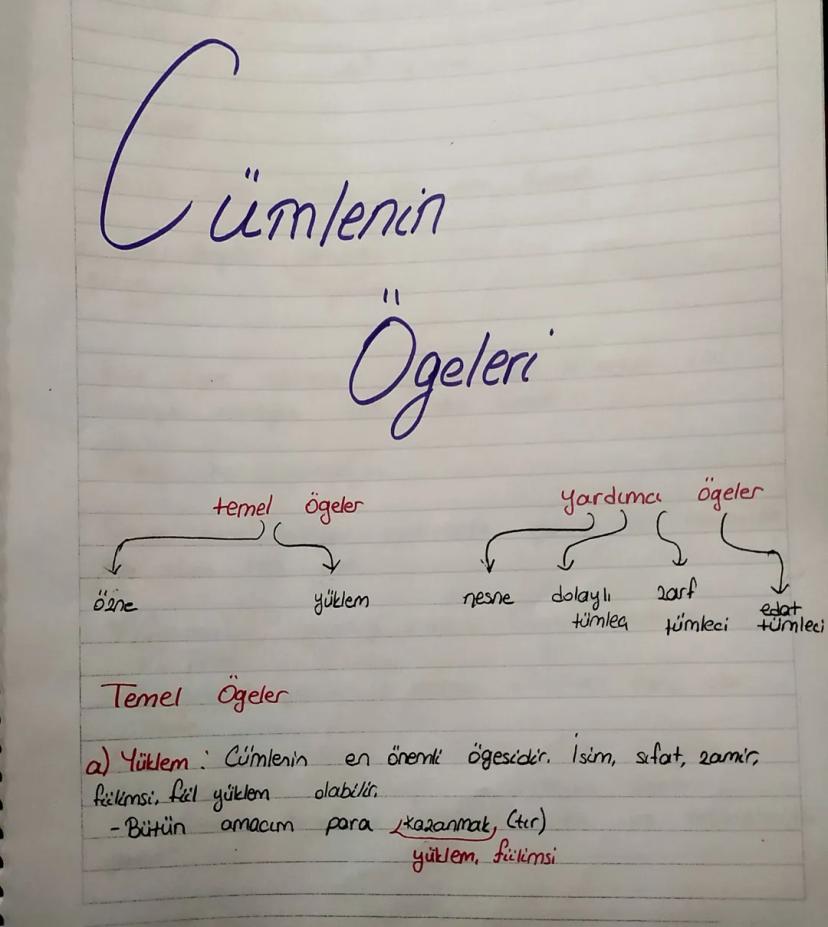 Cümlenin
Ögeleri
temel ögeler yardımcı ögeler
özne yüklem nesne dolaylı tümleç zarf tümleci edat tümleci
Temel Ögeler
a) Yüklem : Cümlenin en önemli ögesidir. İsim, sıfat, zamir,
fiilimsi, fiil yüklem olabilir.
- Bütün amacım para kazanmak, (tır)
yüklem, fiilimsi